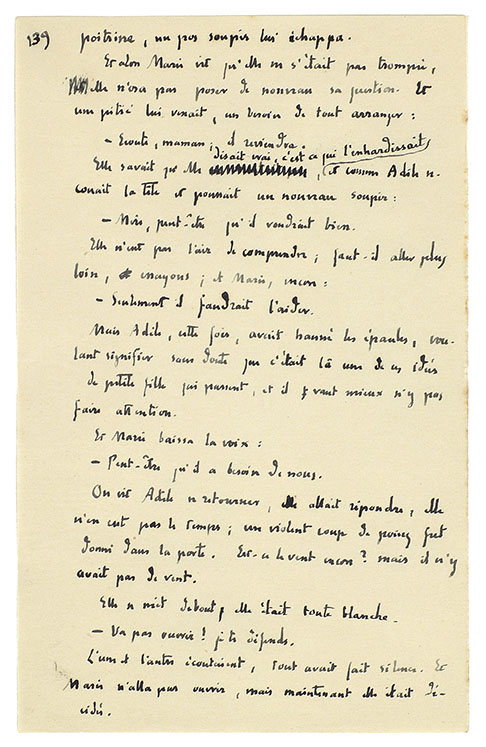 139
poitrine, un gros soupir lui échappa.
Et alors Marie vit qu'elle ne s'était pas trompée,
elle n'osa pas poser de nouveau sa question. Et
une pitié lui venait, un besoin de tout arranger :
– Ecoute, maman, il reviendra.
disait vrai, c'est ce qui l'enhardissait
Elle savait qu'elle , et comme Adèle se-
couait la tête et poussait un nouveau soupir :
– Mais, peut-être qu'il voudrait bien.
Elle n'eut pas l'air de comprendre ; faut-il aller plus
loin, essayons ; et Marie, encore :
– Seulement il faudrait l'aider.
Mais Adèle, cette fois, avait haussé les épaules, vou-
lant signifier sans doute que c'était là une de ces idées
de petite fille qui passent, et il vaut mieux n'y pas
faire attention.
Et Marie baissa la voix :
– Peut-être qu'il a besoin de nous.
On vit Adèle se retourner, elle allait répondre, elle
n'en eut pas le temps ; un violent coup de poing fut
donné dans la porte. Est-ce le vent encore ? mais il n'y
avait pas de vent.
Elle se mit debout, elle était toute blanche.
– Va pas ouvrir ! je te défends.
L'une et l'autre écoutaient, tout avait fait silence. Et
Marie n'alla pas ouvrir, mais maintenant elle était dé-
cidée.